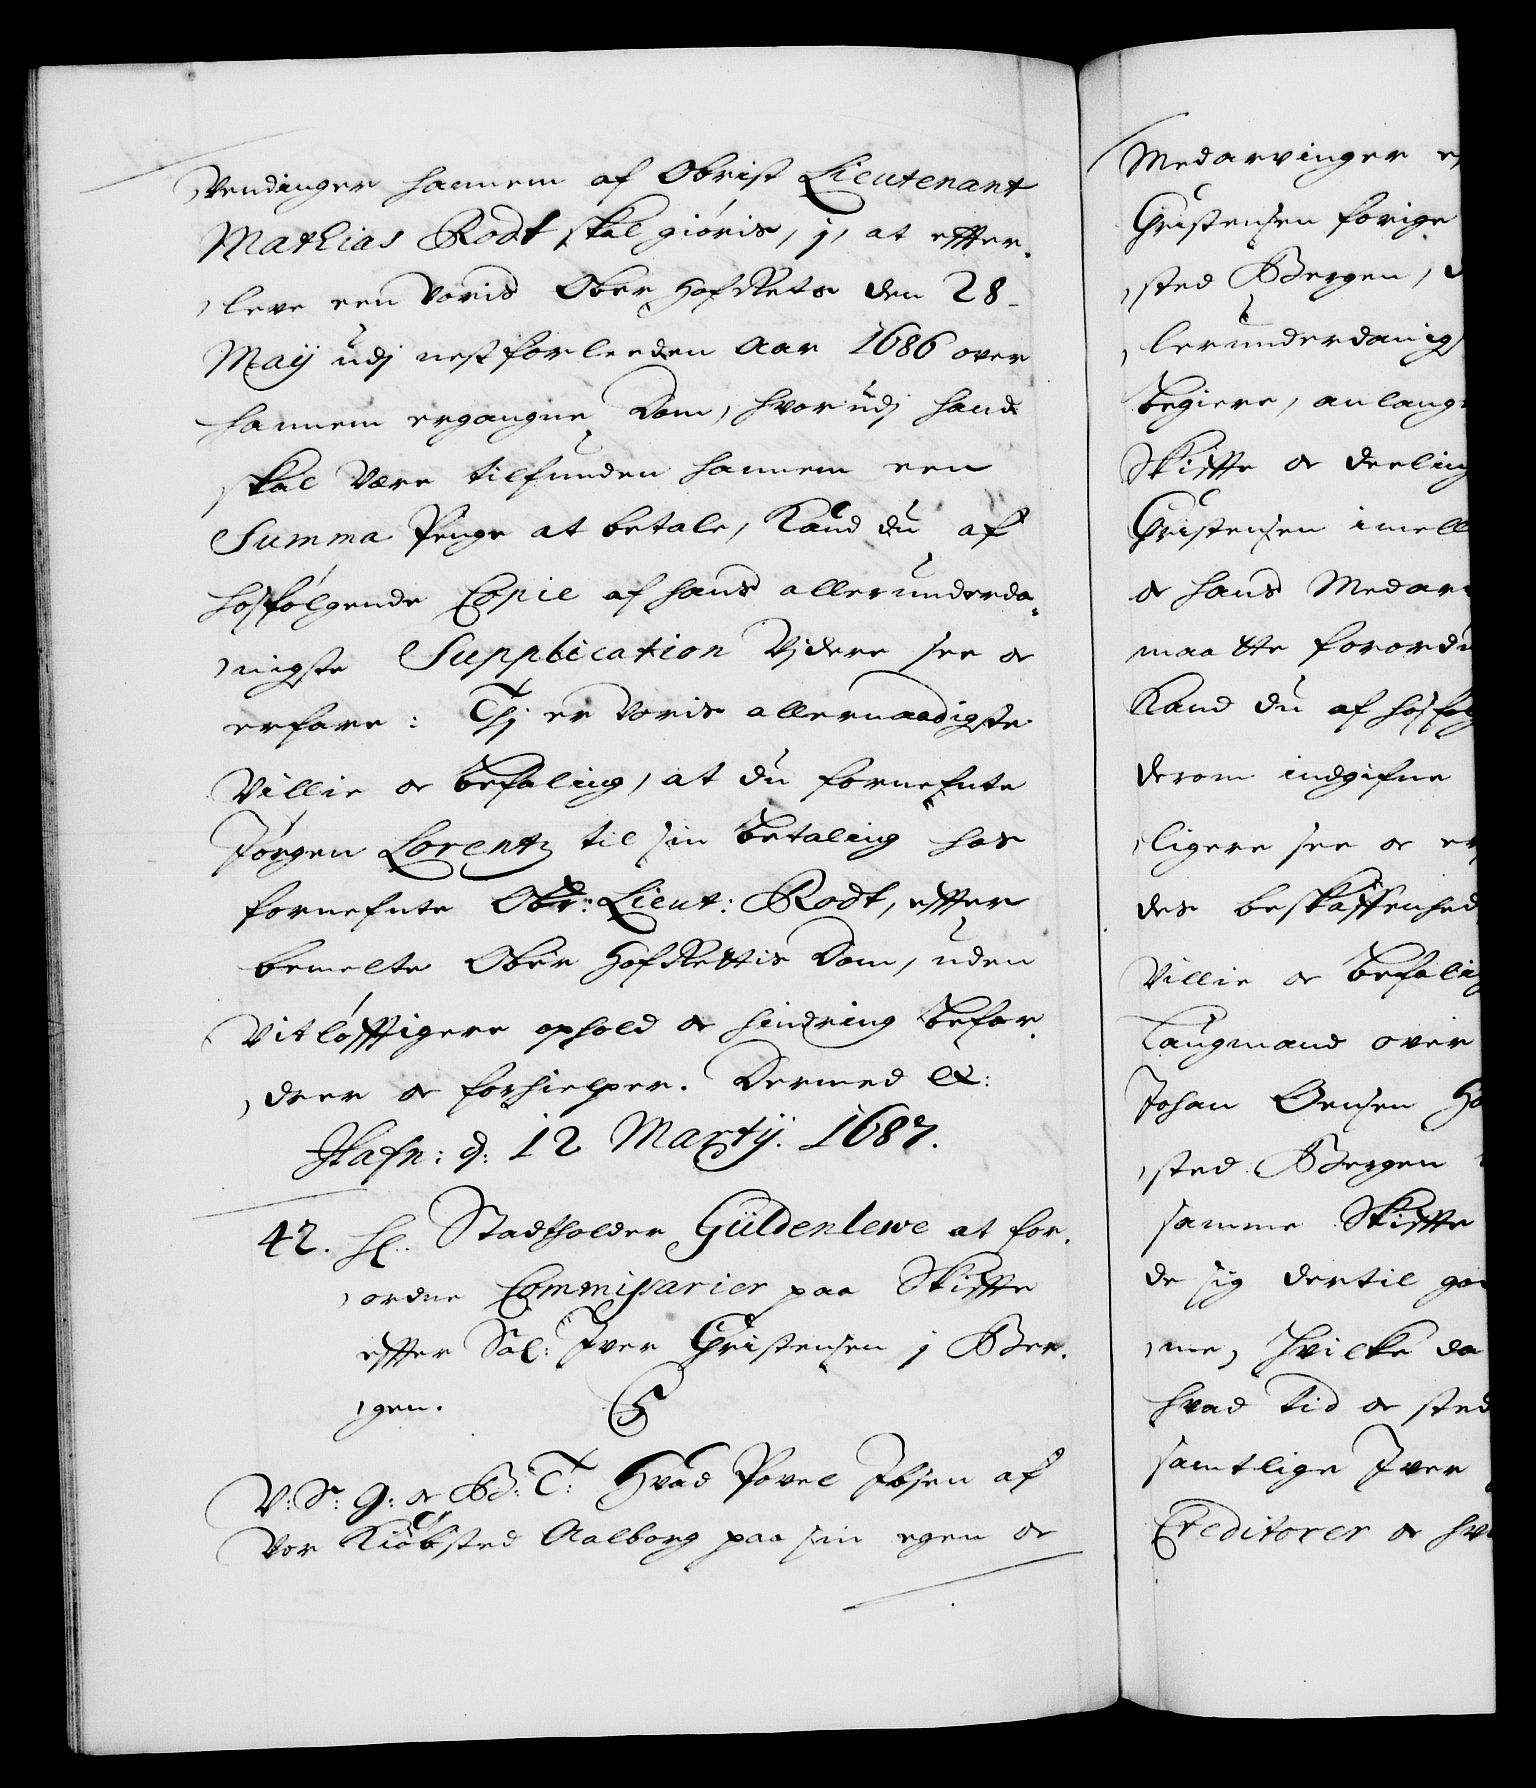 Vendinger hannem af Obrist Lieutenant
Mathias Rodt skal giøris, j, at effter¬
leve een Voris Ober HofRets den 28
Maÿ udj nestforleeden Aar 1686 over
hannem ergangne Dom, hvorudj hand
skal være tilfunden hannem een
Summa Penge at betale, Kand du af
hosfølgende Copie af hans allerunderda¬
nigste Supplication Vjdere see og
erfare: Thj er Voris allernaadigste
Villie og befaling, at du fornefnte
Jørgen Lorentz til sin betaling hos
fornefnte Obr: Lieut: Rodt, effter
bemelte Ober HofRettis Dom, uden
Vitløfftigere ophold og hindring befor¬
drer og forhielper. Dermed &:
Hafn: d: 12 Martÿ. 1687.
42. H. Stadtholder Güldenlewe at for¬
ordne Commissarier paa Skiffte
effter Sal: Iver Christensen j Ber¬
gen.
V: S: G: og B: T: Hvad Povel Ibsen af
Vor Kiøbsted Aalborg paa sin egen og
Medarvinger
Christensen forige
sted Bergen,
lerunderdanigst
begiere, anlang
Skiffte og deeling
Christensen imell
og hans Medar
maatte forordn
Kand du af hosføl
derom indgifne
ligere see og er
des beskaffenhed
Villie og befaling
Laugmand over
Johan Gensen
sted Bergen
samme Skiffte
de sig dertil
me, hvilke da
hvad tid og sted
samtlige Iver
Creditorer og hv